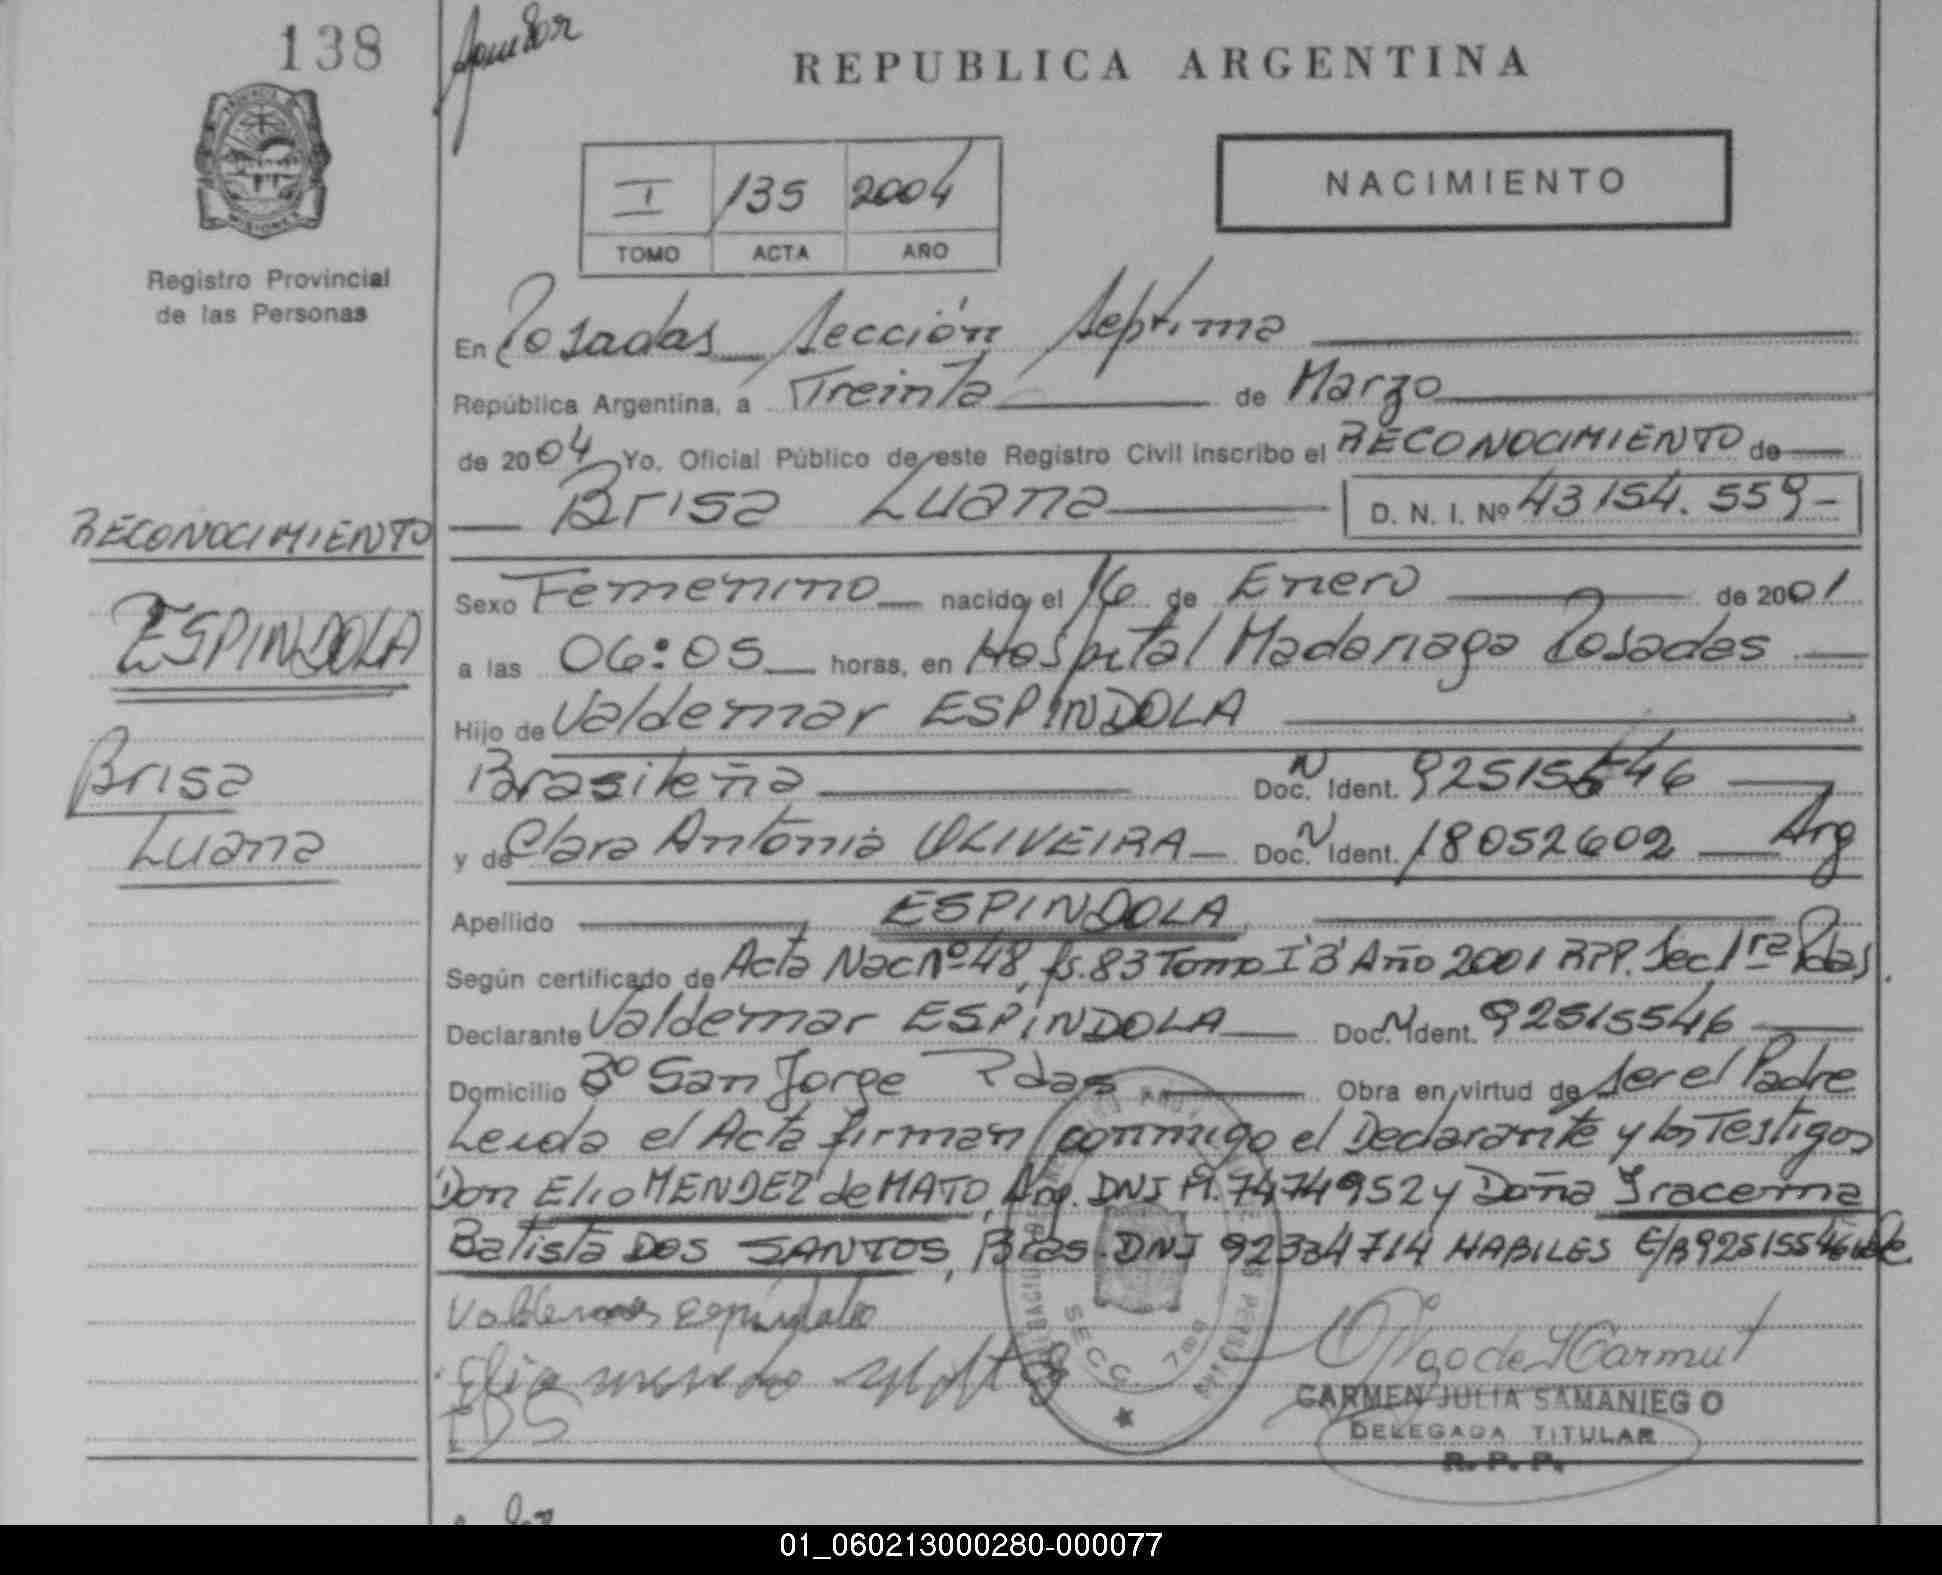 138
REPUBLICA ARGENTINA
PROVINCIA DE
MISIONES
Registro Provincial
de las Personas
I 135 2004
TOMO ACTA AÑO
NACIMIENTO
En Posadas Sección Septima
República Argentina, a Treinta de Marzo
de 2004 Yo. Oficial Público de este Registro Civil inscribo el RECONOCIMIENTO de
Brisa Luana D. N. I. Nº 43154.559-
RECONOCIMIENTO
ESPINDOLA
Brisa
Luana
Sexo Femenino nacido el 16 de Enero de 2001
a las 06:05 horas, en Hospital Madariaga Posadas
Hijo de Valdemar ESPINDOLA
Brasileña Doc. N Ident. 92515546
y de Clara Antonia OLIVEIRA Doc. N Ident. 18052602 Arg
Apellido ESPINDOLA
Según certificado de Acta Nac Nº 48, fs. 83 Tomo I'B' Año 2001 RPP. Sec 1ra Pdas.
Declarante Valdemar ESPINDOLA Doc. N Ident. 92515546
Domicilio Bº San Jorge Pdas Obra en virtud de ser el Padre
Leida el Acta firman conmigo el Declarante y los Testigos
Don Elio MENDEZ de MATO, Arg. DNI M. 7474952 y Doña Iracema
Batista DOS SANTOS, Bras. DNI 92334714 HABILES E/R 92515546 Vale.
Valdemar espindola
IDS
SECC. 7ma
CARMEN JULIA SAMANIEGO
DELEGADA TITULAR
R. P. P.
01_060213000280-000077